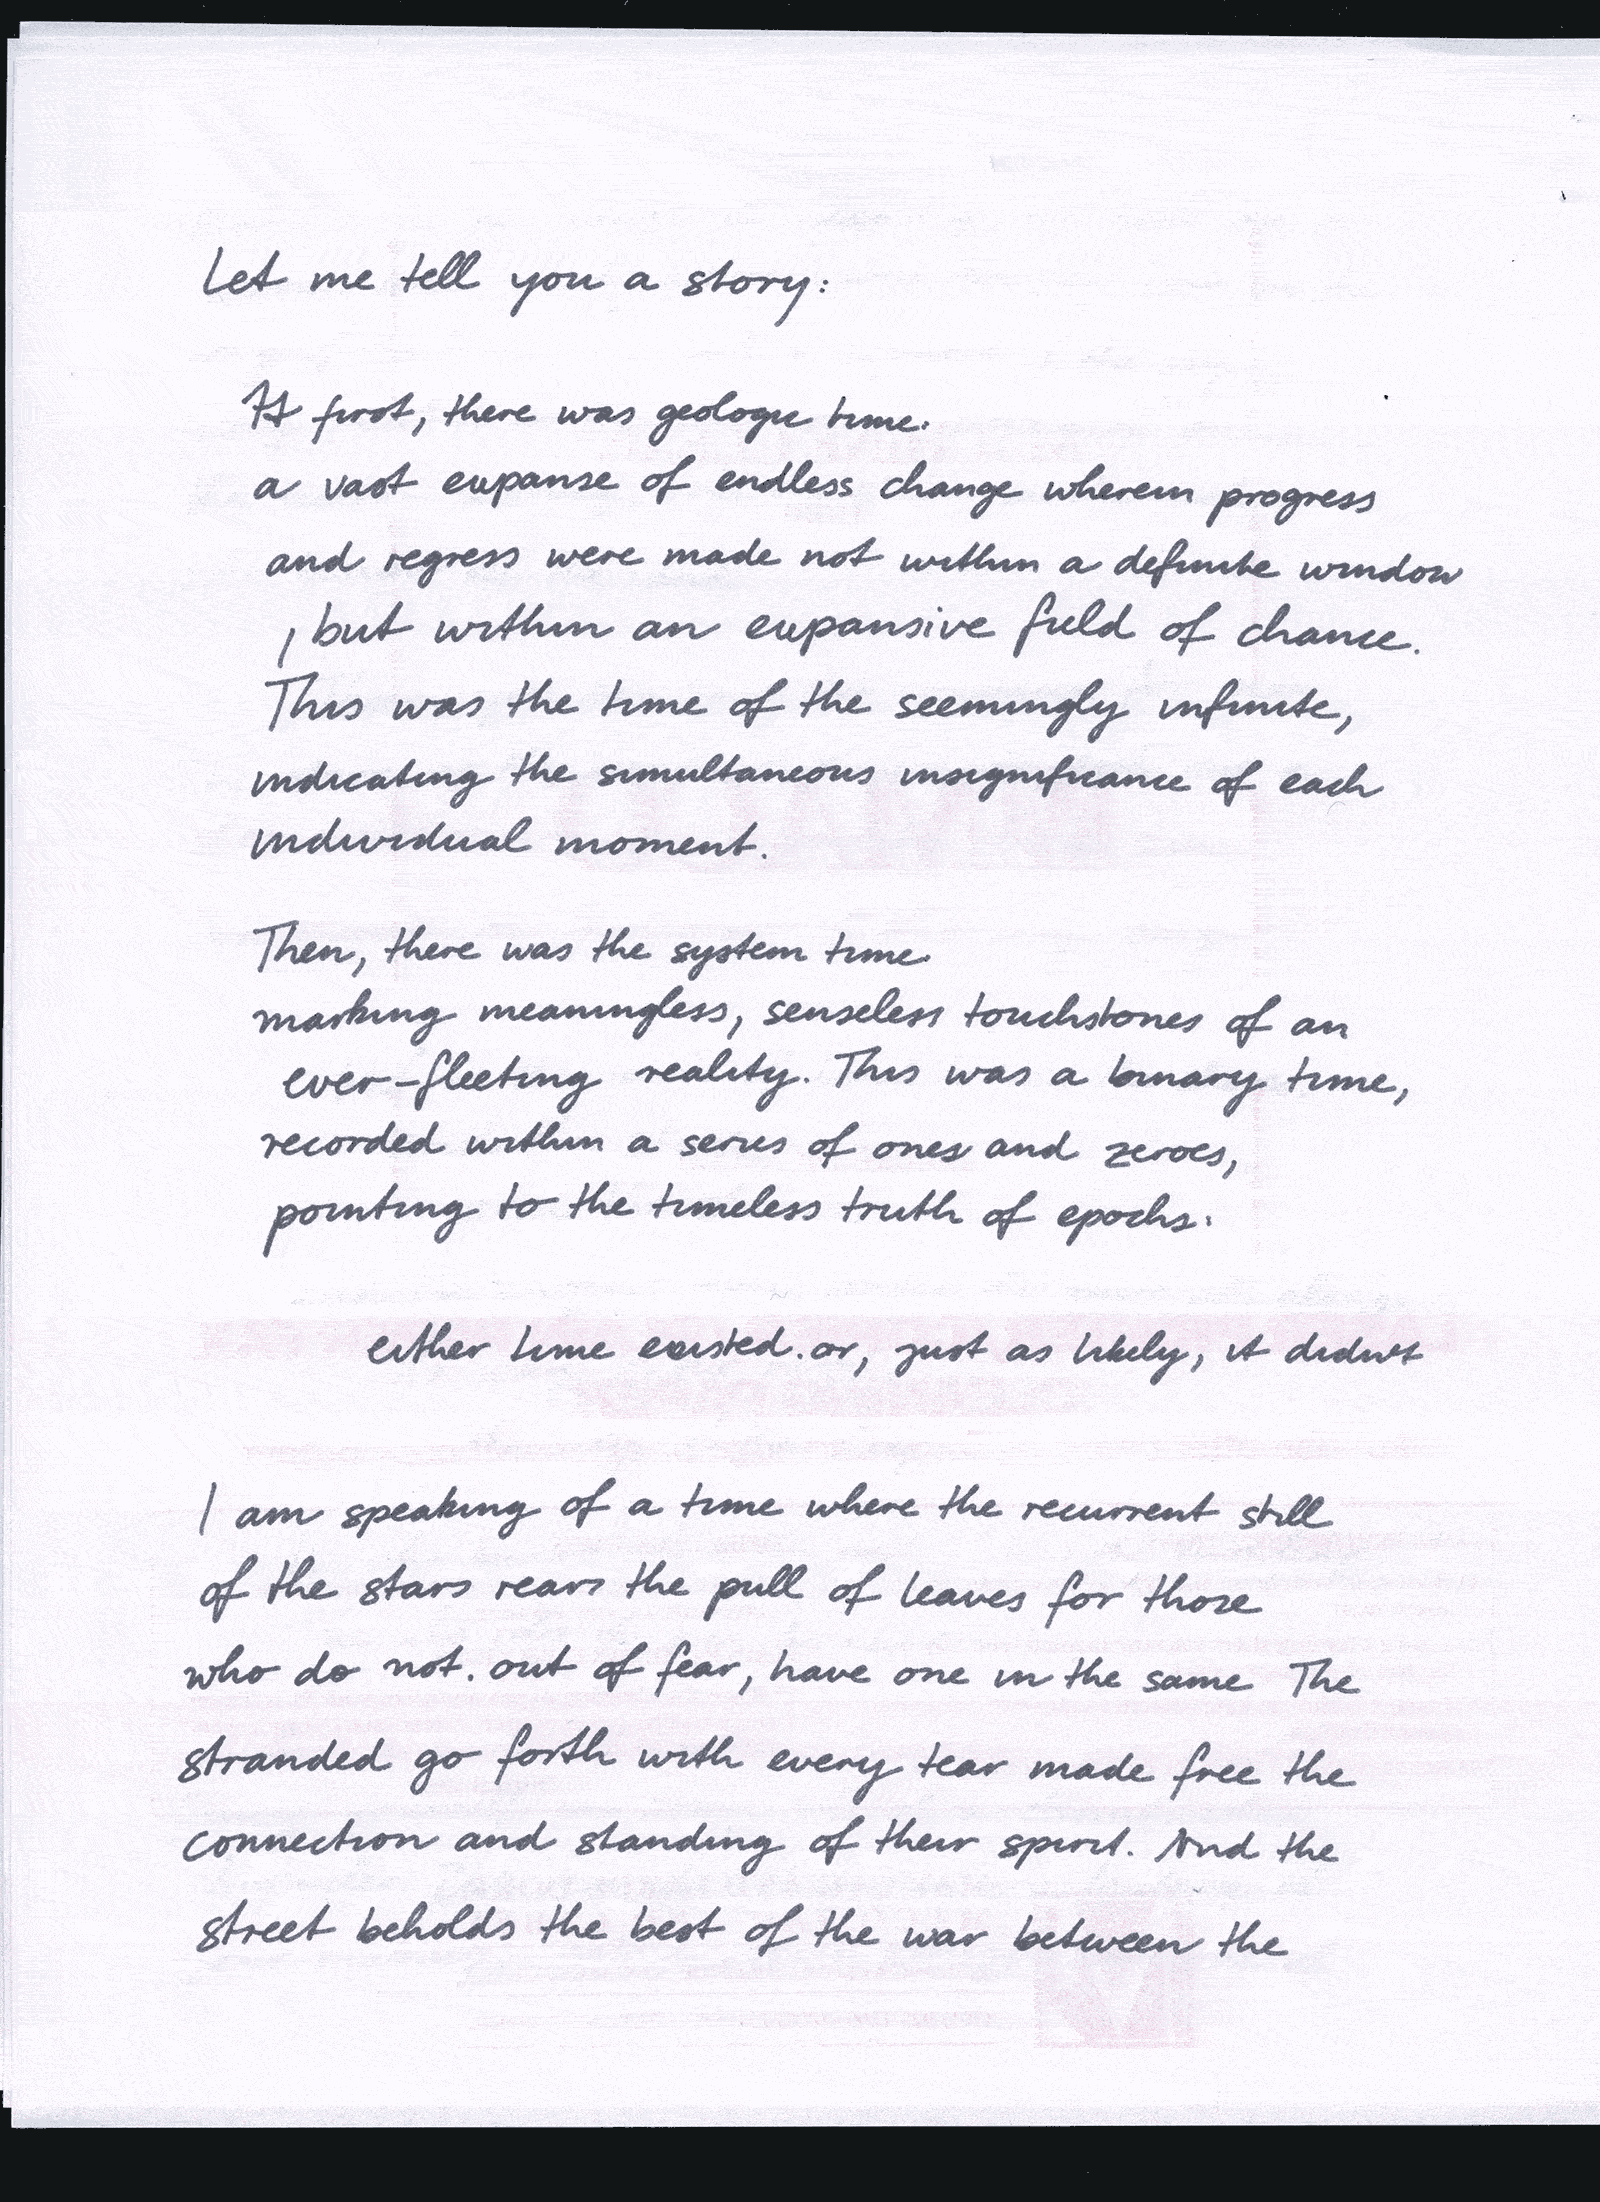 Let me tell you a story:
At first, there was geologic time.
a vast expanse of endless change wherein progress
and regress were made not within a definite window
, but within an expansive field of chance.
This was the time of the seemingly infinite,
indicating the simultaneous insignificance of each
individual moment.
Then, there was the system time.
marking meaningless, senseless touchstones of an
ever-fleeting reality. This was a binary time,
recorded within a series of ones and zeroes,
pointing to the timeless truth of epochs.
either time existed. or, just as likely, it didn't
I am speaking of a time where the recurrent still
of the stars rears the pull of leaves for those
who do not. out of fear, have one in the same The
stranded go forth with every tear made free the
connection and standing of their spirit. And the
street beholds the best of the war between the